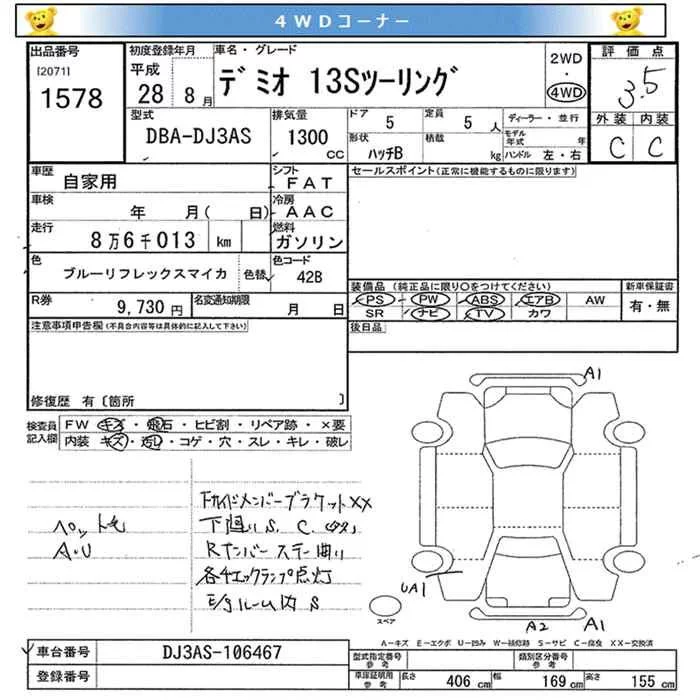 4WDコーナー
出品番号
[2071]
1578
初度登録年月
平成
28 8月
車名・グレード
デミオ 13Sツーリング
2WD
・
4WD
評価点
3.5
外装 内装
C C
型式
DBA-DJ3AS
排気量
1300
CC
ドア 5
定員 5 人
形状 ハッチB
積載 kg
ディーラー・並行
モデル年式 年
ハンドル 左・右
車歴
自家用
シフト
FAT
車検
年 月( 日)
冷房
AAC
走行
8万6千013 km
燃料
ガソリン
色
ブルーリフレックスマイカ
色替
色コード
42B
R券
9,730円
名変通知期限
月 日
セールスポイント(正常に機能するものに限ります)
装備品 (純正品に限り○をつけてください)
新車保証書
PS PW ABS エアB AW
有・無
SR ナビ TV カワ
後日品
注意事項申告欄(不具合内容等は具体的に記入して下さい)
修復歴 有〔箇所 〕
検査員
記入欄
FW キズ・飛石・ヒビ割・リペア跡・×要
内装 キズ・汚レ・コゲ・穴・スレ・キレ・破レ
ペット毛
A・U
FガイドメンバーブラケットXX
下廻りS、C
Rナンバーステー曲り
各チェックランプ点灯
E/gルーム内S
A1
UA1
A2
A1
スペア
A-キズ E-エクボ U-凹み W-補修跡 S-サビ C-腐食 XX-交換済
車台番号
DJ3AS-106467
登録番号
型式指定番号
参考
類別区分番号
参考
車庫証明用
参考
長さ 406 cm
幅 169 cm
高さ 155 cm